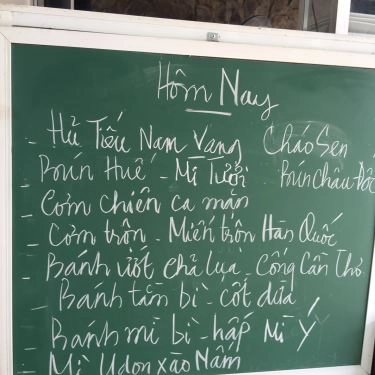 Hôm Nay
- Hủ Tiếu Nam Vang Cháo Sen
Bún Huế - Mì Tươi Bún Châu Đốc
- Cơm chiên cá mặn
- Cơm trộn - Miến trộn Hàn Quốc
- Bánh ướt chả lụa - Cống Cần Thơ
Bánh tằm bì - cốt dừa
- Bánh mì bì - hấp Mì Ý
- Mì Udon xào Nấm